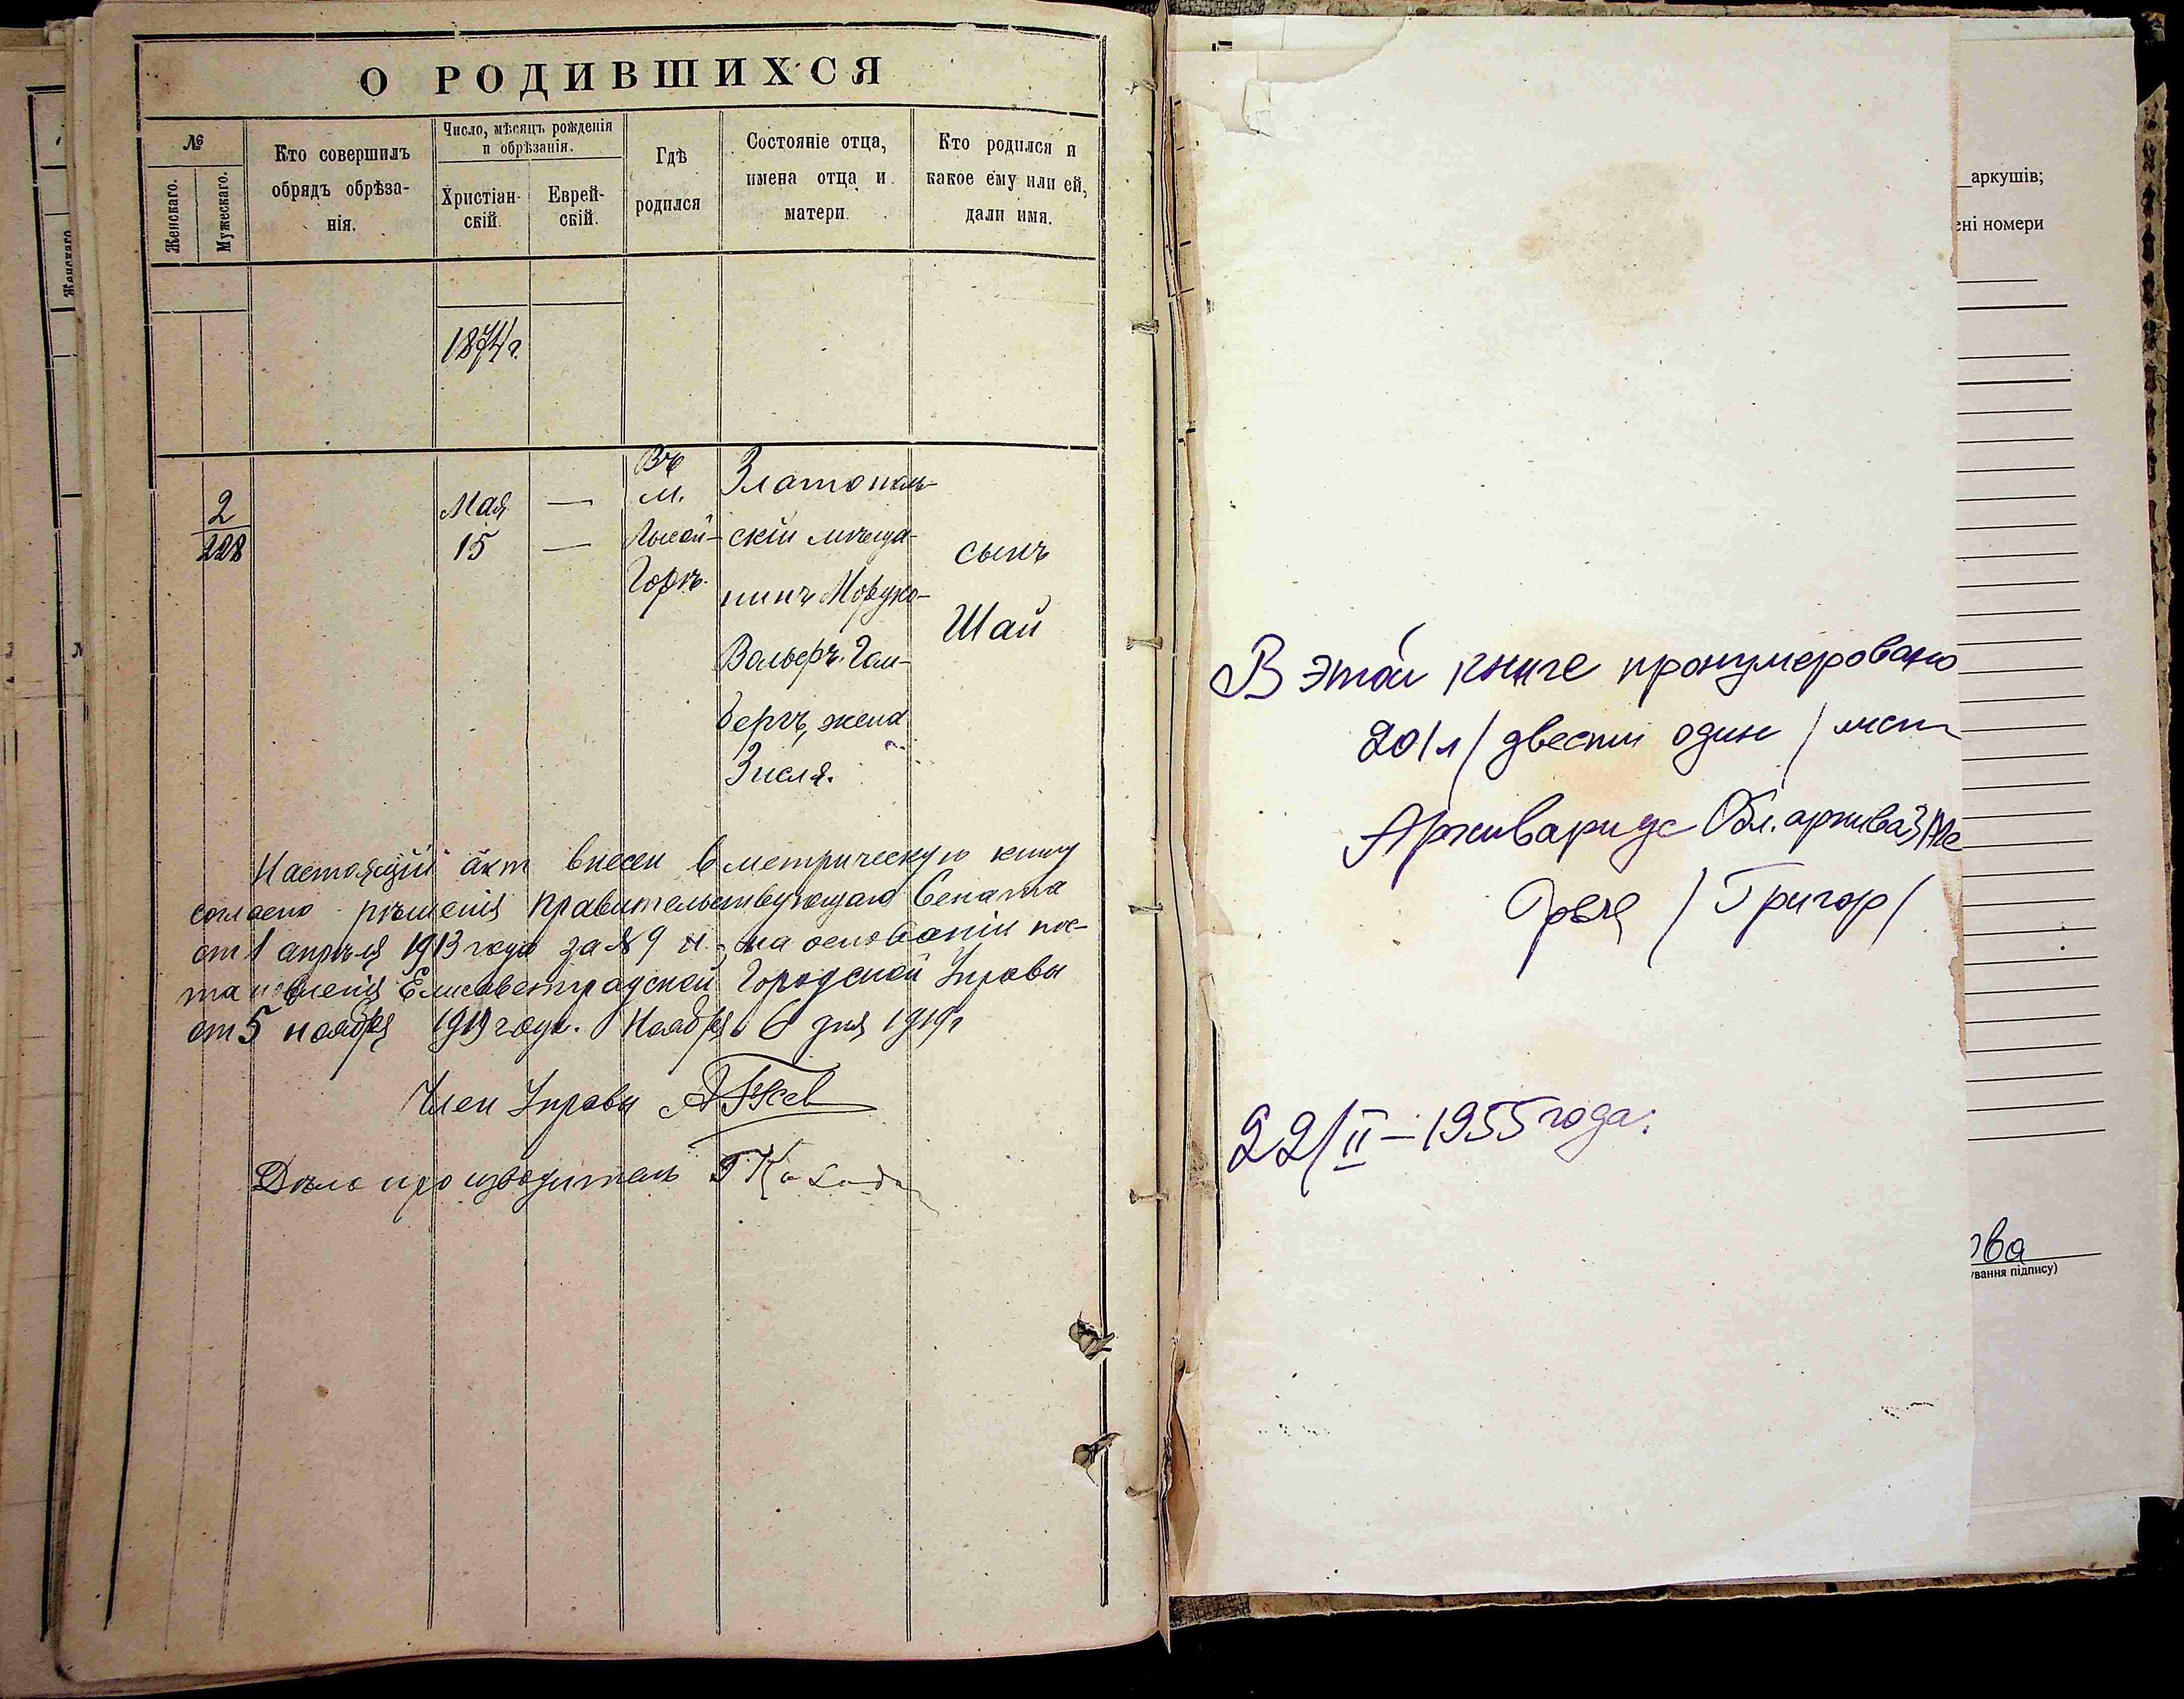 О РОДИВШИХСЯ
№
Женскаго.
Мужескаго.
Кто совершилъ
обрядъ обрѣза-
нія.
Число, мѣсяцъ рожденія
и обрѣзанія.
Христіан-
скій.
Еврей-
скій.
Гдѣ
родился
Состояніе отца,
имена отца и
матери.
Кто родился и
какое ему или ей,
дали имя.
1874 г.
2
228
Мая
15
—
—
Въ
м.
Лысой-
Горѣ.
Златополь-
скій мѣща-
нинъ Мордко-
Вольфъ Гам-
бергъ, жена
Зисля.
сынъ
Шай
Настоящій акт внесен в метрическую книгу
согласно рѣшенія Правительствующаго Сената
от 1 апрѣля 1913 года за № 9 и на основаніи пос-
тановленія Елисаветградской Городской Управы
от 5 ноября 1919 года. Ноября 6 дня 1919 г
Член Управы
Дѣлопроизводитель
В этой книге пронумеровано
201 л / двести один / лист
Архивариус Обл. архива ЗАГС
/ Григор /
22/II – 1955 года.
аркушів;
ені номери
ова
ування підпису)
Женскаго